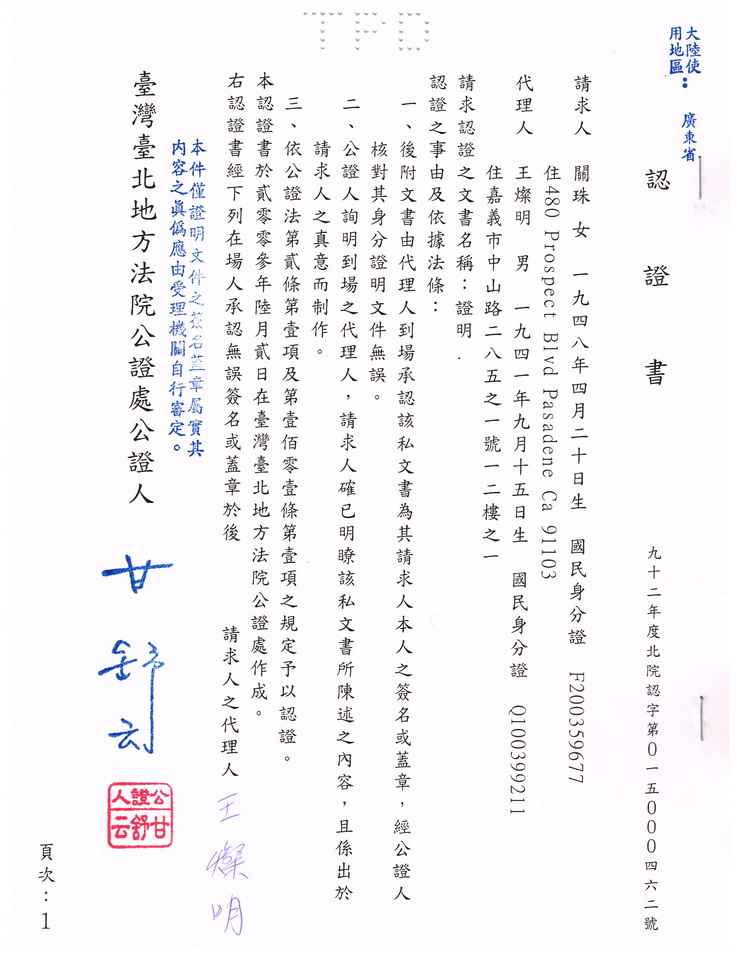 TPD
大陸使用地區：　廣東省
認證書
九十二年度北院認字第0一五000四六二號
請求人　關珠　女　一九四八年四月二十日生　國民身分證　F200359677
住480 Prospect Blvd Pasadene Ca 91103
代理人　王燦明　男　一九四一年九月十五日生　國民身分證　Q100399211
住嘉義市中山路二八五之一號一二樓之一
請求認證之文書名稱：證明.
認證之事由及依據法條：
一、後附文書由代理人到場承認該私文書為其請求人本人之簽名或蓋章，經公證人
核對其身分證明文件無誤。
二、公證人詢明到場之代理人，請求人確已明瞭該私文書所陳述之內容，且係出於
請求人之真意而制作。
三、依公證法第貳條第壹項及第壹佰零壹條第壹項之規定予以認證。
本認證書於貳零零參年陸月貳日在臺灣臺北地方法院公證處作成。
右認證書經下列在場人承認無誤簽名或蓋章於後
請求人之代理人　王燦明
本件僅證明文件之簽名蓋章屬實其
內容之真偽應由受理機關自行審定。
臺灣臺北地方法院公證處公證人
甘舒云
公證人甘舒云
頁次：1